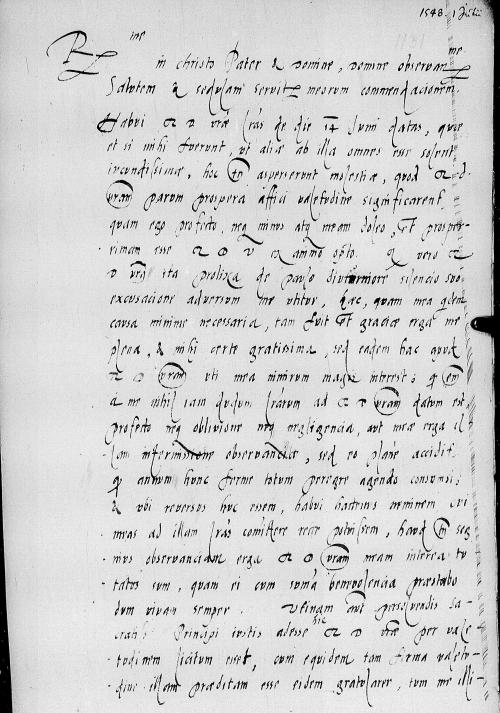 1548. 1 Julii
R me
in christo Pater & Domine, Domine observan me
Salutem & sedulam servit meorum commendacionem.
Habui R D vrãe lrãs de die 14 Junii datas, quae
et si mihi fuerunt, ut aliae ab illa omnes esse solent
iucundissimae, hoc tn asperserunt molestiae, quod R D.
vram parum prospera affici valetudine significarent
quam ego profecto, neq minus atq meam doleo, Et prosper-
rimam esse R D V ex animo opto. q vero R
D vra ita prolixa de paulo diuturniore silencio suo
excusacione adversum me utitur, haec, quam mea qdem
causa minime necessaria, tam fuit Et graciae erga me
plena, & mihi certe gratissima, sed eadem hac quod
R D vram uti mea nimirum magni interest: q em
a me nihil iam dudum lrarum ad R D vram datum est
profecto neq oblivione neq negligencia, aut meae erga il-
lam intermissione observanciae, sed eo plane accidit
q annum hunc ferme totum peregre agendo consumsi:
& ubi reversus huc essem, habui hactenus neminem cui
meas ad illam lrãs comittere recte potuissem, haud tn seg
nius observanciam erga R D vram meam interea tu
tatus sum, quam ei cum suma benevolencia praestabo
dum vivam semper. Utinam aut persolvendis sa-
cratiss Principi iustis adesse hic R D vrãe per vale
tudinem licitum esset, cum equidem tam firma valetu-
dine illam praeditam esse eidem gratularer, tum me illi-